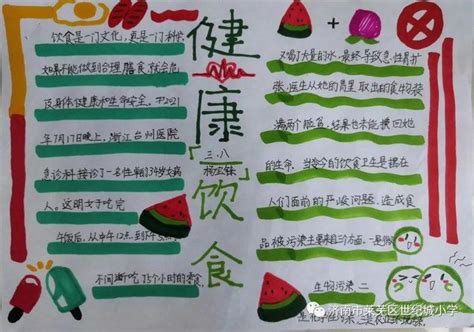 健康饮食
三.八
饮食是一门文化,真是一门科学
如果不能做到合理膳食,就会危
及身体健康和生命安全。
年7月17日晚上,浙江台州医院
急诊科接诊了一名年龄34岁女病
人。这明女子吃完
午饭后,从中午12点到
不间断吃了5个小时的零食,
又喝了大量的水,最终导致急性胃扩
张,医生从她的胃里取出的食物装
满两个脸盆,好果也未能挽回她
的生命,当今的饮食卫生是摆在
人们面前的严峻问题,造成食
品被污染主要来自三方面,一是微
生物污染 二
是化学
济南市莱芜区世纪城小学